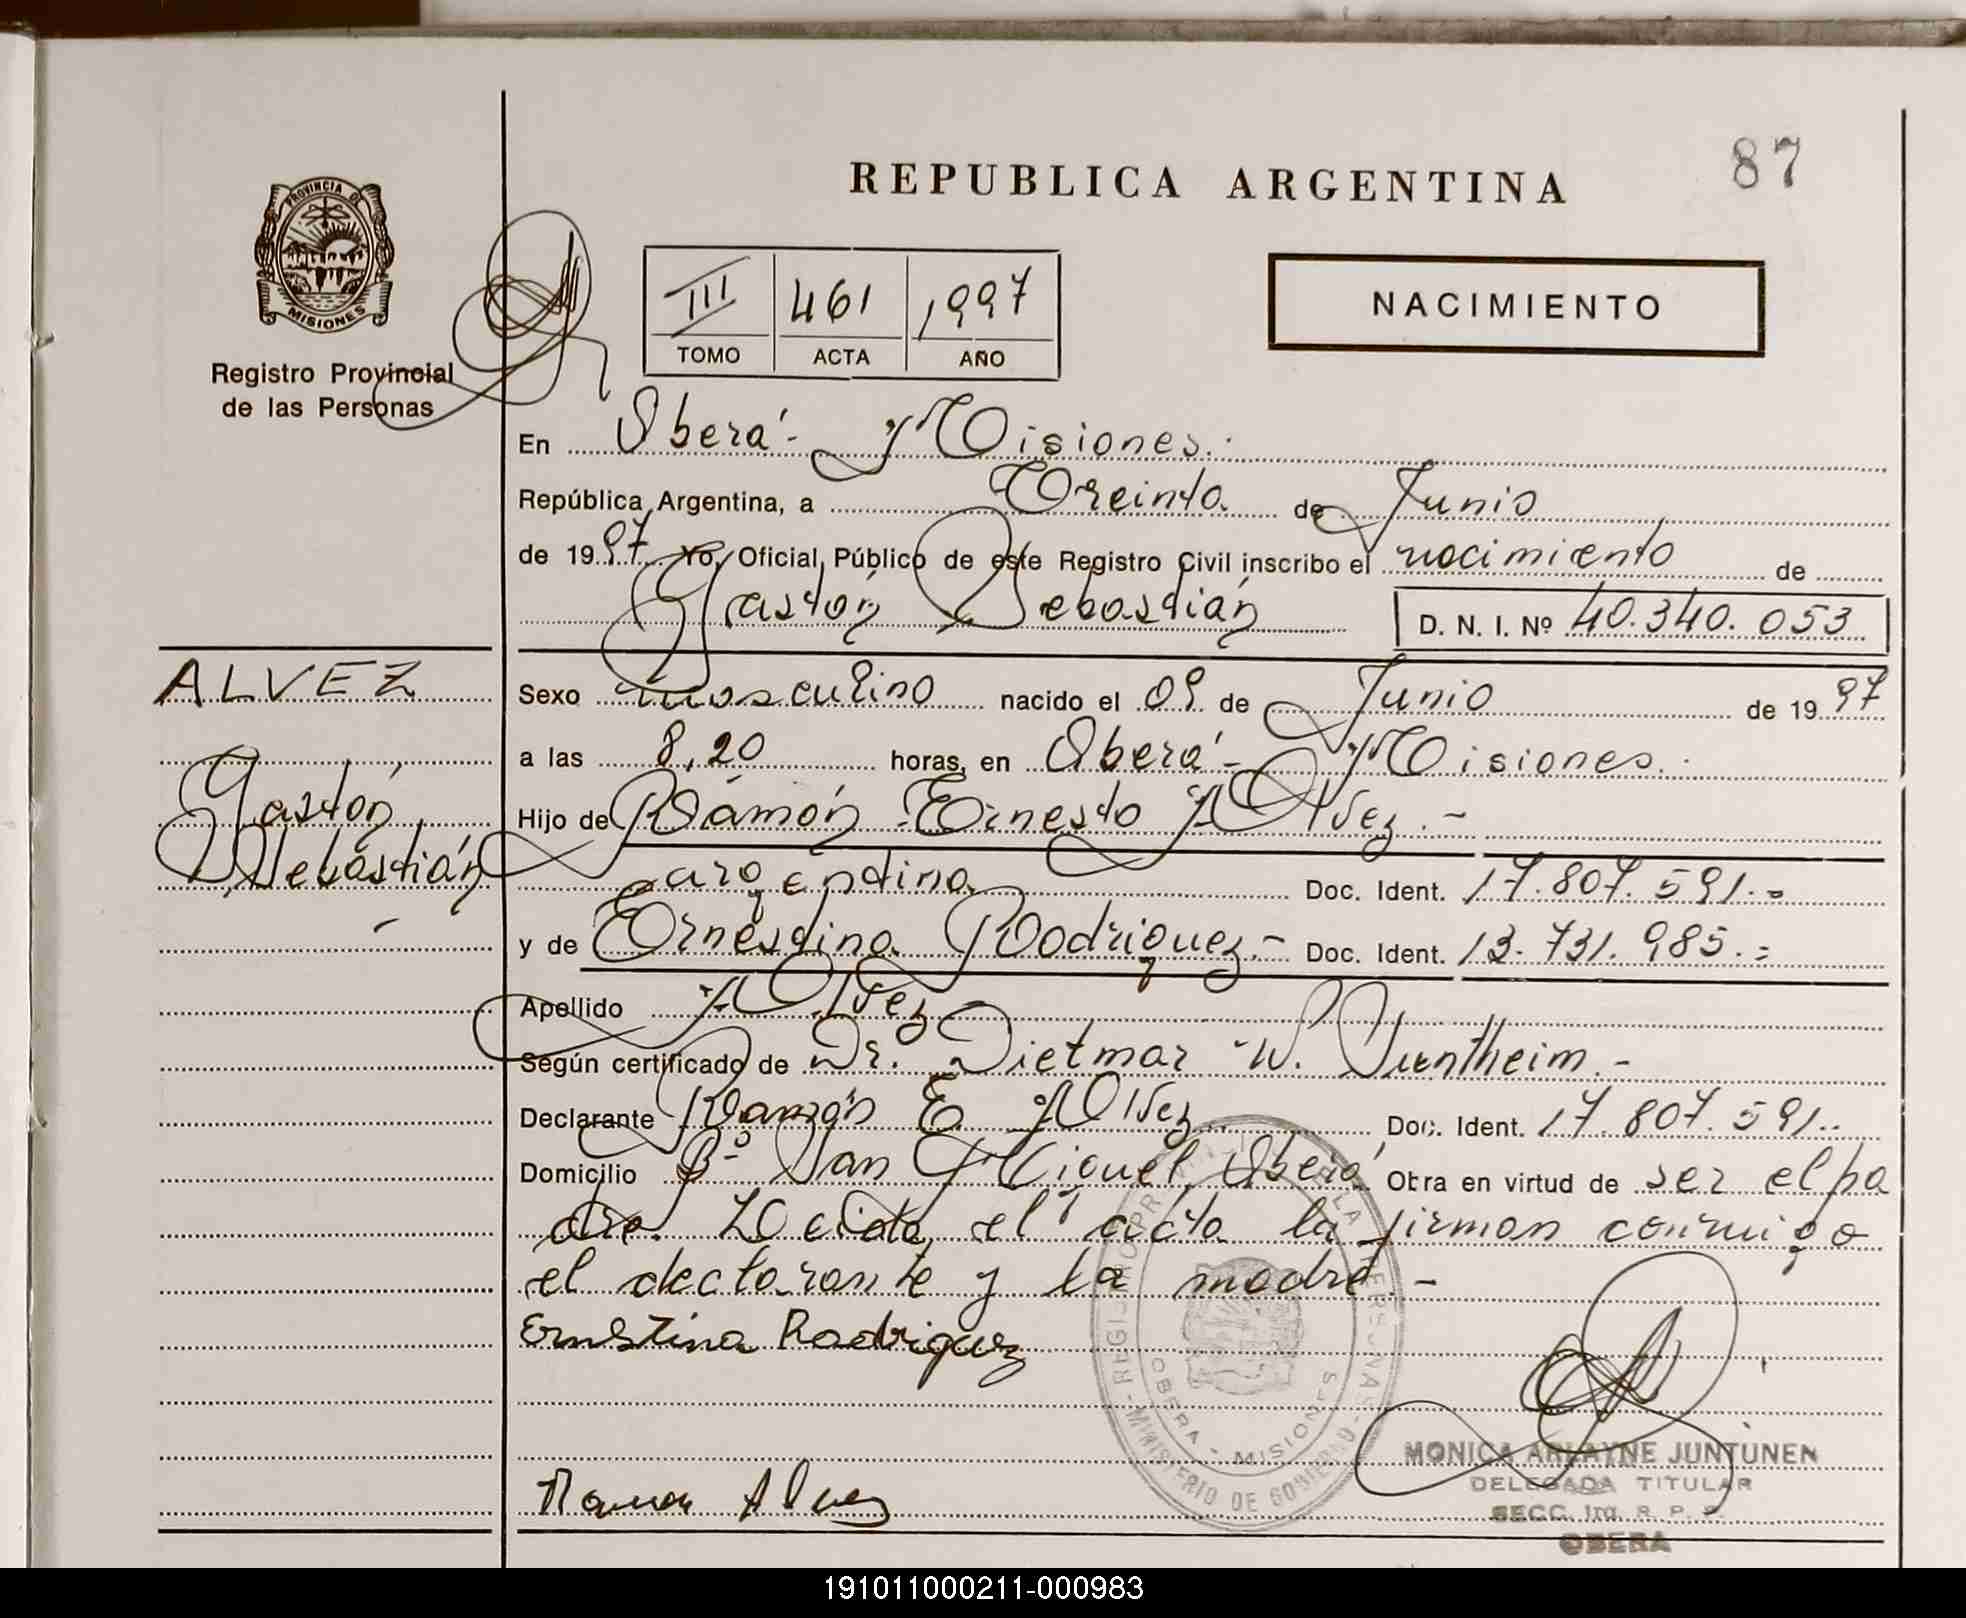 REPUBLICA ARGENTINA
87
PROVINCIA DE
MISIONES
Registro Provincial
de las Personas
III 461 1997
TOMO ACTA AÑO
NACIMIENTO
En Oberá - Misiones.
República Argentina, a Treinta de Junio
de 1997 Yo, Oficial Público de este Registro Civil inscribo el nacimiento de
Gastón Sebastián D. N. I. Nº 40.340.053
ALVEZ
Gastón
Sebastián
Sexo masculino nacido el 09 de Junio de 1997
a las 8,20 horas, en Oberá - Misiones.
Hijo de Ramón Ernesto Alvez. -
argentina Doc. Ident. 17.807.591.-
y de Ernestina Rodriguez - Doc. Ident. 13.731.985.-
Apellido Alvez -
Según certificado de Dr. Dietmar W. 
Declarante Ramón E. Alvez Doc. Ident. 17.807.591..
Domicilio Bº San Miguel, Oberá Obra en virtud de ser el pa
dre. Leida el acta la firman conmigo
el declarante y la madre. -
Ernstina Rodriguez
Ramon Alvez
OBERA - MISIONES
MINISTERIO DE GOBIERNO
MONICA ARLAYNE JUNTUNEN
DELEGADA TITULAR
SECC. 1ra. R. P. P.
OBERA
191011000211-000983